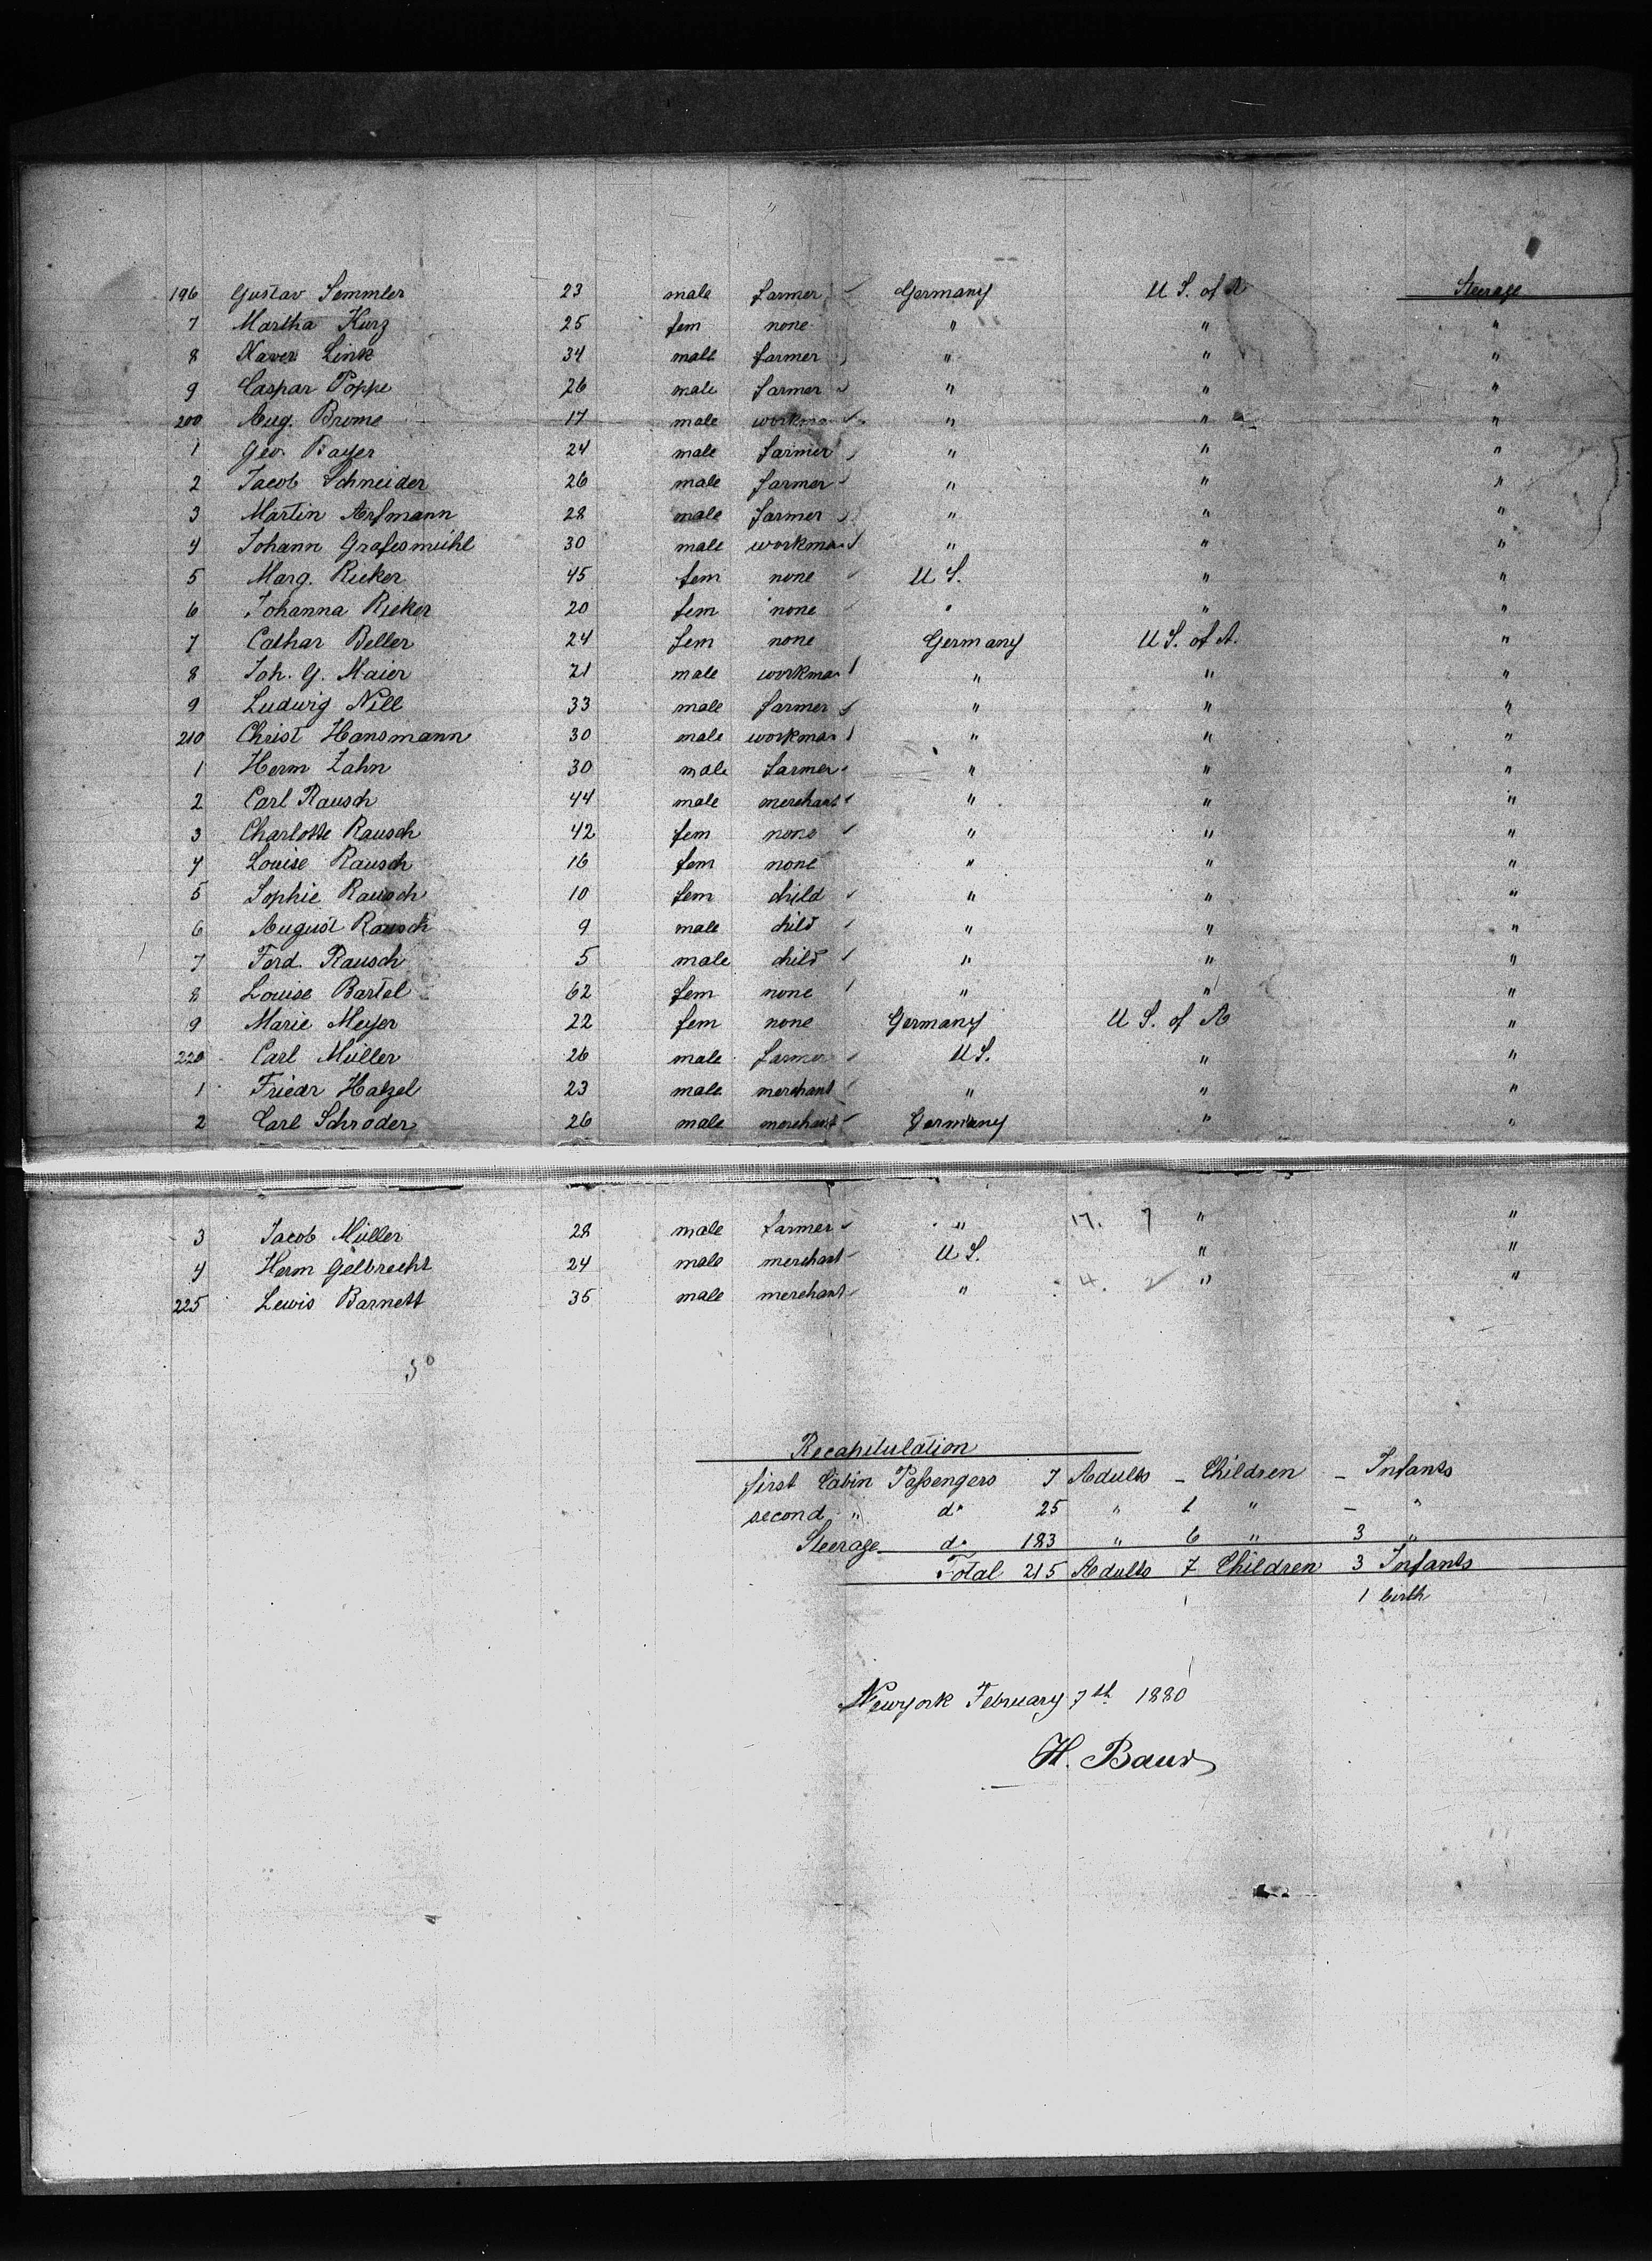 196 Gustav Semmler 23 male farmer Germany U S. of A Steerage
7 Martha Kurz 25 fem none " " "
8 Xaver Link 34 male farmer " " "
9 Caspar Poppe 26 male farmer " " "
200 Aug. Brome 17 male workman " " "
1 Geo. Bayer 24 male farmer " " "
2 Jacob Schneider 26 male farmer " " "
3 Martin Arfmann 28 male farmer " " "
4 Johann Grafesmühl 30 male workman " " "
5 Marg. Rieker 45 fem none U S. " "
6 Johanna Rieker 20 fem none " " "
7 Cathar Beller 24 fem none Germany U S. of A. "
8 Joh. G. Maier 21 male workman " " "
9 Ludwig Nill 33 male farmer " " "
210 Christ Hansmann 30 male workman " " "
1 Herm Zahn 30 male farmer " " "
2 Carl Rausch 44 male merchant " " "
3 Charlotte Rausch 42 fem none " " "
4 Louise Rausch 16 fem none " " "
5 Sophie Rausch 10 fem child " " "
6 August Rausch 9 male child " " "
7 Ferd. Rausch 5 male child " " "
8 Louise Bartel 62 fem none " " "
9 Marie Meyer 22 fem none Germany U S. of A "
220 Carl Müller 26 male farmer U S. " "
1 Friedr Hatzel 23 male merchant " " "
2 Carl Schroder 26 male merchant Germany " "
3 Jacob Müller 28 male farmer " 17. 7 " "
4 Herm Gelbrecht 24 male merchant U S. " "
225 Lewis Barnett 35 male merchant " 4 2 " "
Recapitulation
first Cabin Passengers 7 Adults - Children - Infants
second " do 25 " 1 " - "
Steerage do 183 " 6 " 3 "
Total 215 Adults 7 Children 3 Infants
1 birth
Newyork February 7th 1880
H. Baur